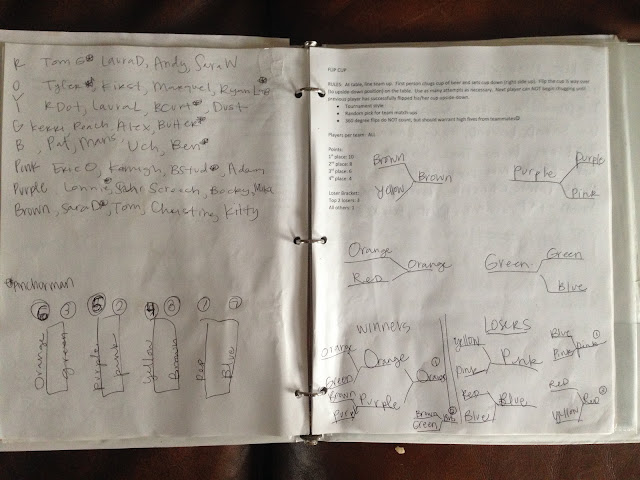 R Tom G LauraD, Andy, SaraW
O Tyler, Kirst, Marquel, Ryan L
Y KDot, Laural, BCurt, Dust
G Kerri, Peach, Alex, Butter
B, Pat, Uch, Ben
Pink Eric O, Kamigh, BStud, Adam
Purple, Lonnie, Screach, Bocky, Mike
Brown, SaraD, Tom, Christina, Kitty
Anchorman
6 3 5 2 4 0 1 7
Orange
green
Purple
pink
Yellow
Brown
Red
Blue
FLIP CUP
RULES: At table, line team up. First person chugs cup of beer and sets cup down (right side up). Flip the cup is way over
(to upside down position) on the table. Use as many attempts as necessary. Next player can NOT begin chugging until
previous player has successfully flipped his/her cup upside-down.
• Tournament style
• Random pick for team match-ups
• 360 degree flips do NOT count, but should warrant high fives from teammates
Players per team: ALL
Points:
1st place: 10
2nd place: 8
3rd place: 6
4th place: 4
Loser Bracket:
Top 2 losers: 3
All others: 1
Brown
Yellow
Brown
Purple
Purple
Pink
Orange
Red
Orange
Green
Green
Blue
WINNERS
Orange
Green
Orange
Brown
Purple
Purple
Orange 1
Brown
Green
LOSERS
Yellow
Pink
Pink
Red
Blue
Blue
Blue
Pink
Pink 1
Red
Yellow
Red 2